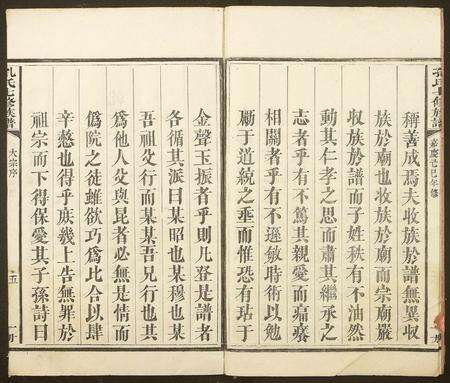 稱善成焉夫收族於譜無異收
族於廟也收族於廟而宗廟嚴
收族於譜而子姓秩有不油然
動其仁孝之思而肅其繼承之
志者乎有不篤其親愛而痛癢
相關者乎有不遜敏時術以勉
勵于道統之垂而惟恐有玷于
金聲玉振者乎則凡登是譜者
各循其派曰某昭也某穆也某
吾祖父行而某某吾兄行也其
爲他人父與昆者必無是情而
僞院之徒雖欲巧爲比合以肆
辛螫也得乎庶幾上告無罪於
祖宗而下得保愛其子孫詩曰
大宗序
五